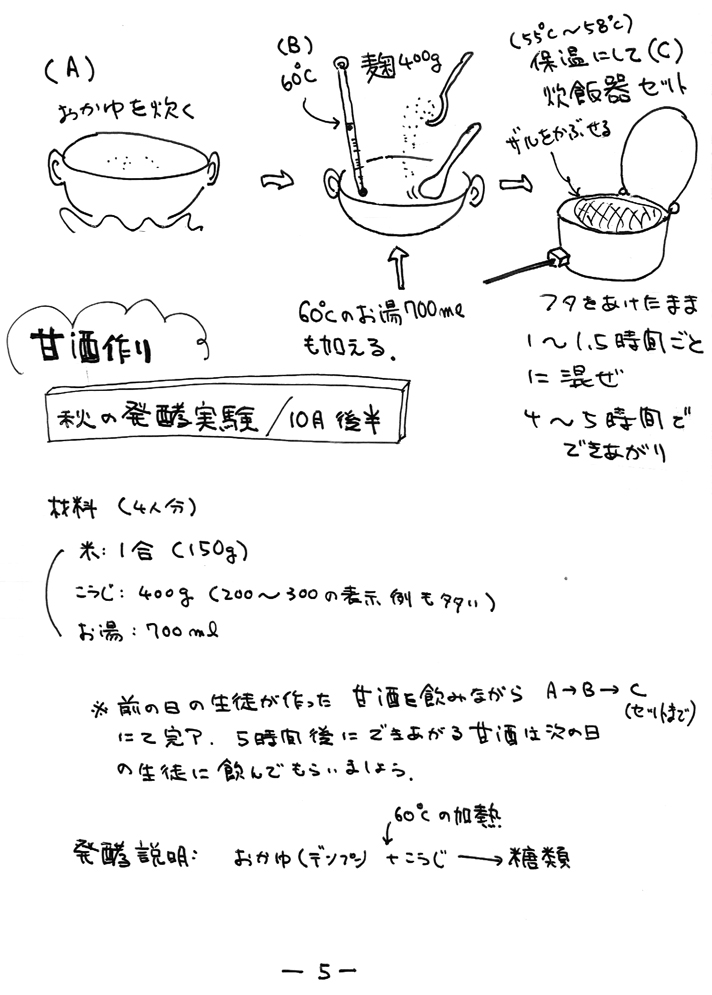 (A)
おかゆを炊く
(B)
60℃
麹400g
60℃のお湯700ml
も加える.
(55℃〜58℃)
保温にして(C)
炊飯器セット
ザルをかぶせる
フタをあけたまま
1〜1.5時間ごと
に混ぜ
4〜5時間で
できあがり
甘酒作り
秋の発酵実験/10月後半
材料(4人分)
米:1合(150g)
こうじ:400g(200〜300の表示例も多い)
お湯:700ml
※前の日の生徒が作った 甘酒を飲みながら A→B→C
(セットまで)
にて完了. 5時間後にできあがる甘酒は次の日
の生徒に飲んでもらいましょう.
60℃の加熱
発酵説明: おかゆ(デンプン) +こうじ → 糖類
— 5 —